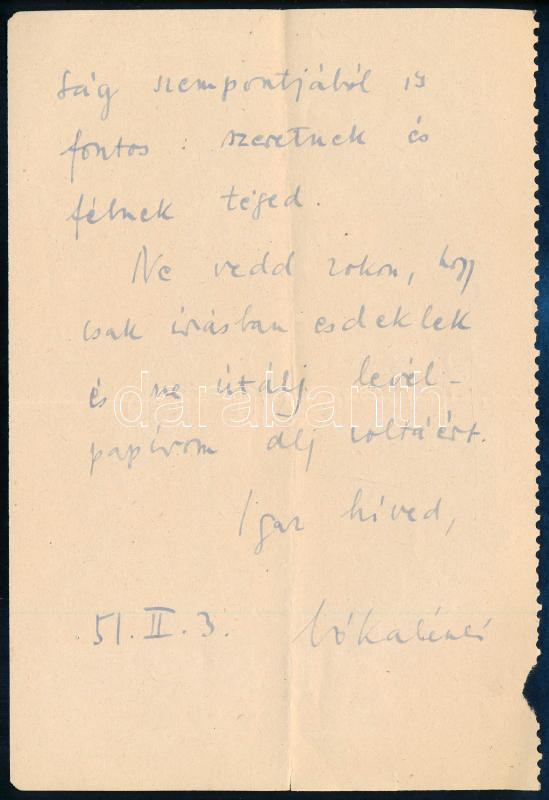 ság szempontjából is
fontos: szeretnek és
félnek téged.
Ne vedd zokon, hogy
csak írásban esdeklek
és ne útálj levél-
papírom alj voltáért.
Igaz híved,
51. II. 3. Bóka László
darabanth